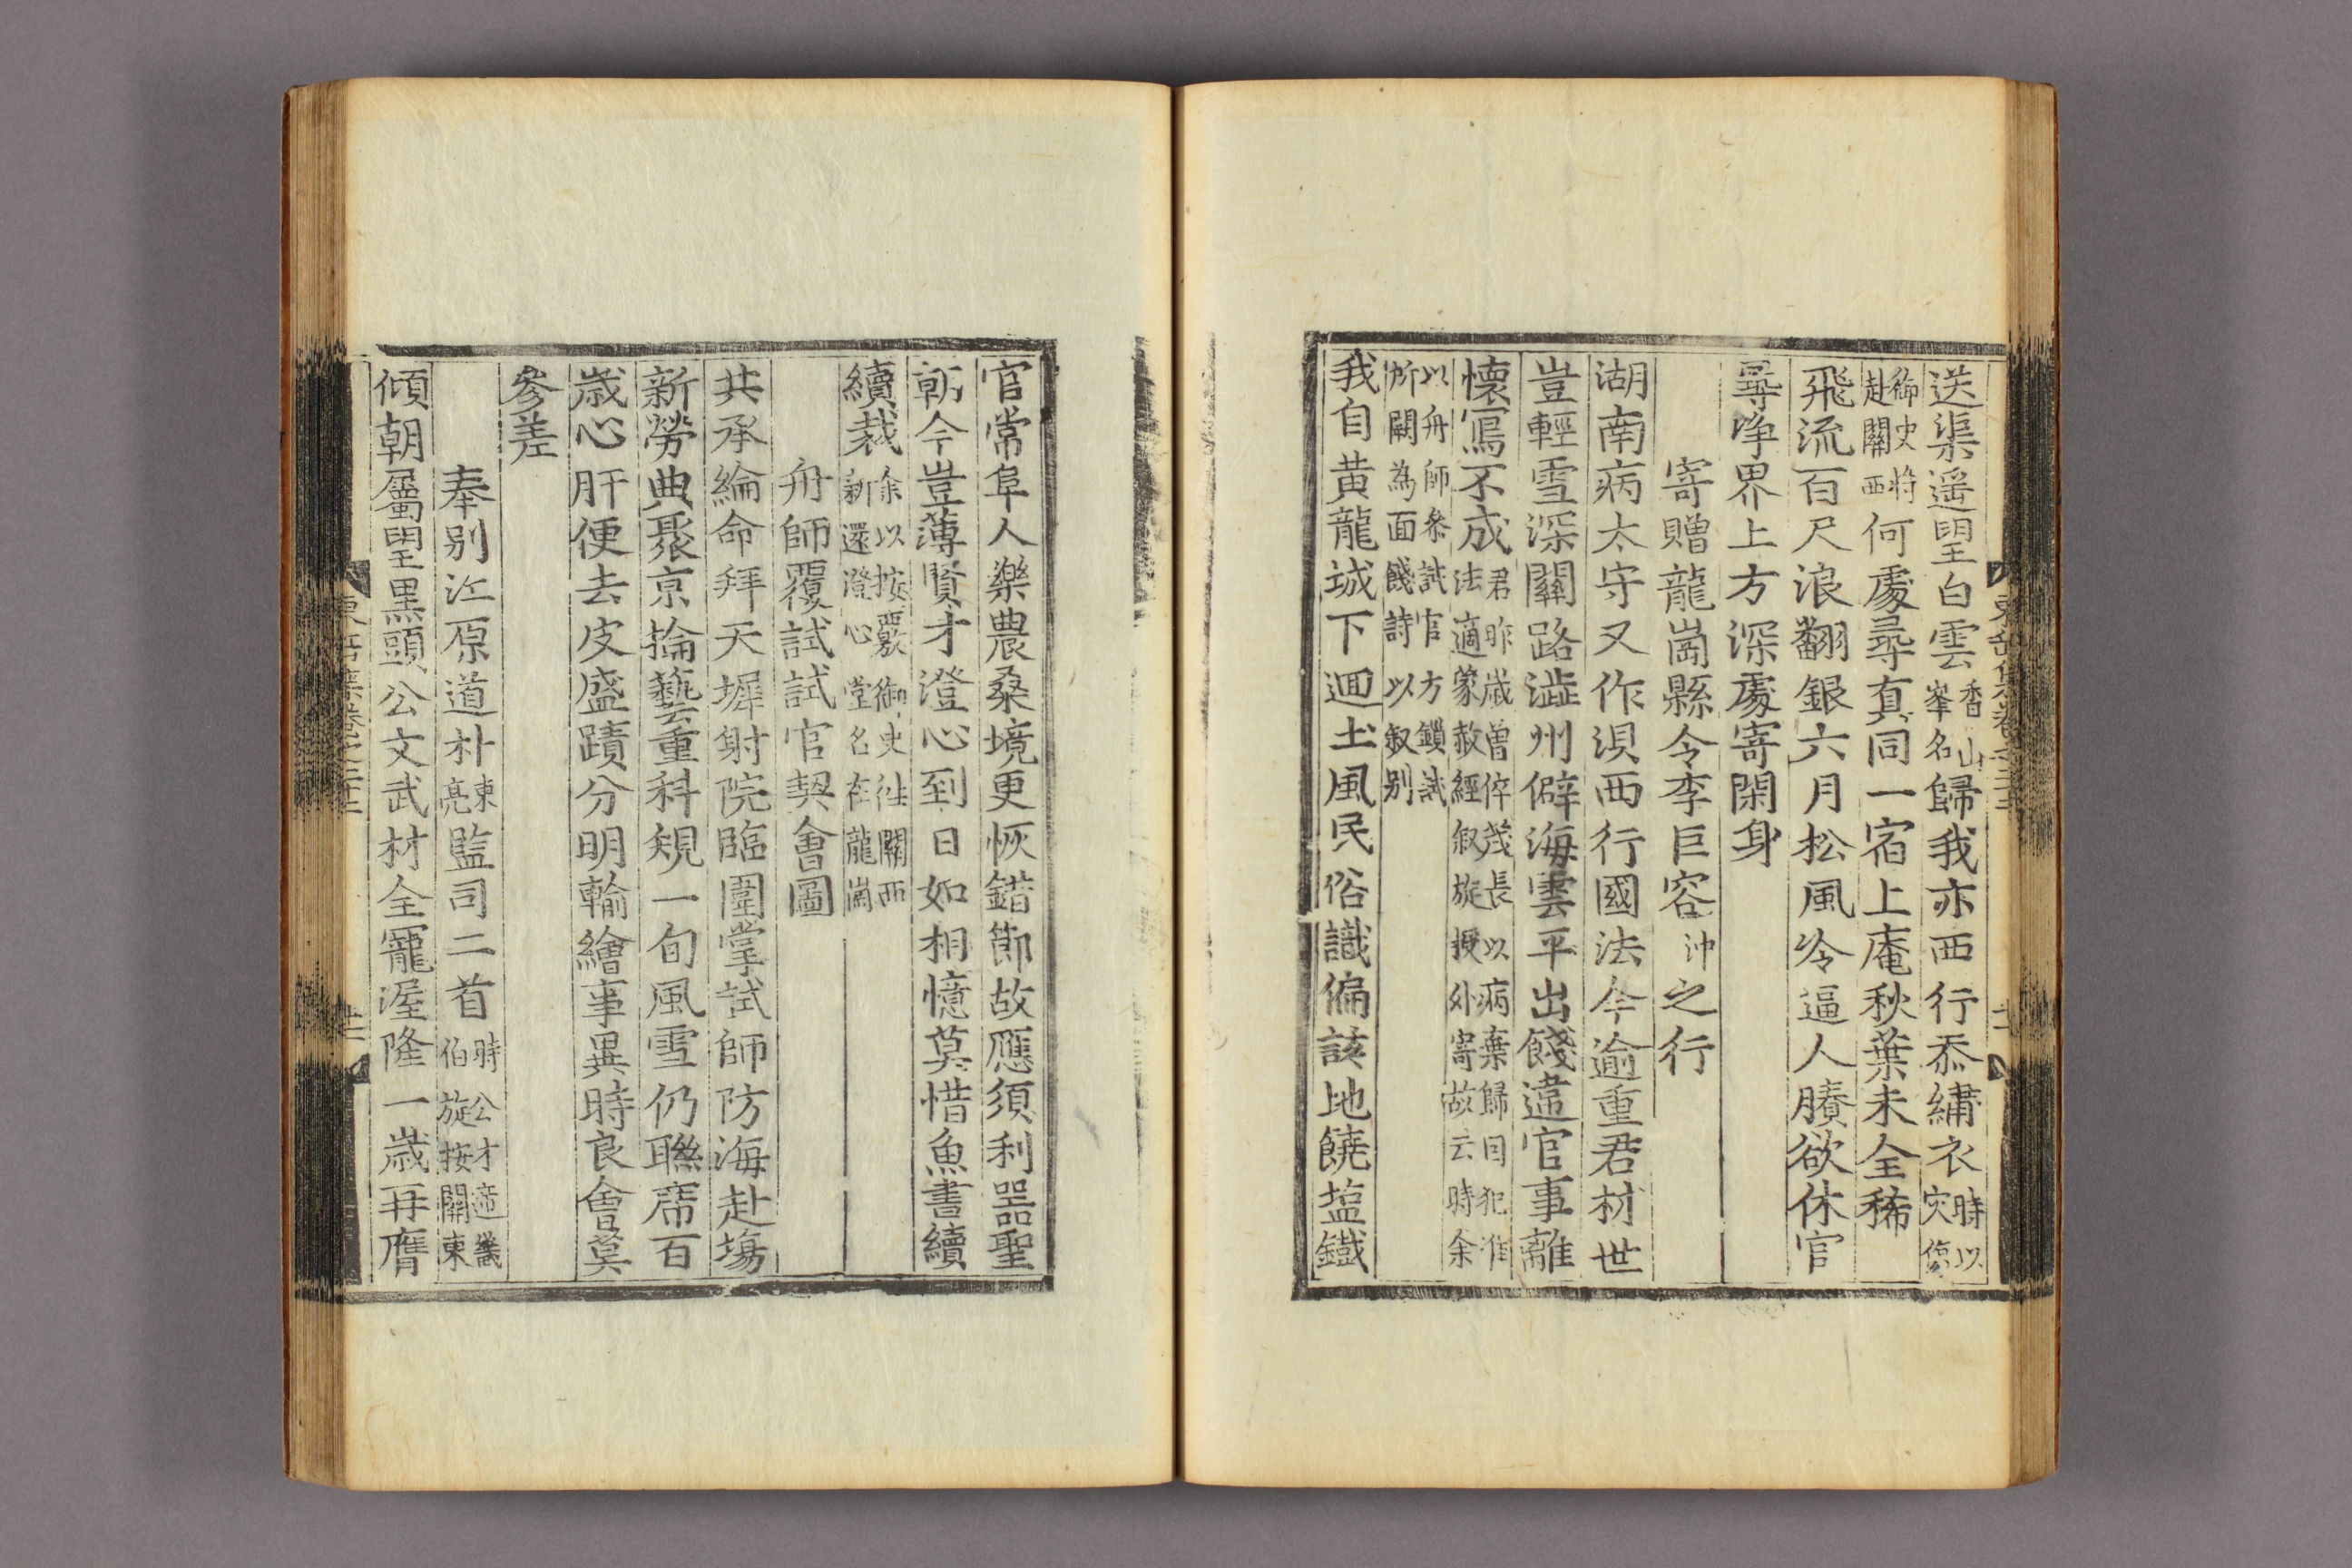 送渠遥望白雲香山峯名歸我亦西行忝繡衣時以灾傷
御史將赴關西何處尋真同一宿上庵秋葉未全稀
飛流百尺浪翻銀六月松風冷逼人賸欲休官
尋净界上方深處寄閑身
寄贈龍崗縣令李巨容沖之行
湖南病太守又作浿西行國法今逾重君材世
豈輕雪深關路澁州僻海雲平出餞違官事離
懷寫不成君昨歲曾倅茂長以病棄歸曰犯准法適蒙赦經叙旋授外寄故云時余
以舟師參試官方鎖試所闕為面餞詩以叙别
我自黄龍城下迴土風民俗識偏該地饒塩鐵
東岳集卷之二十二
官常阜人樂農桑境更恢錯節故應須利器聖
朝今豈薄賢才澄心到日如相憶莫惜魚書續
續裁余以按覈御史往關西新還澄心堂名在龍崗
舟師覆試試官契會圖
共承綸命拜天墀射院臨圍掌試師防海赴塲
新勞典聚京掄藝重科規一旬風雪仍聯席百
歲心肝便去皮盛蹟分明輸繪事異時良會莫
參差
奉别江原道朴東亮監司二首時公才適畿伯旋按關東
傾朝屬望黒頭公文武材全寵渥隆一歲再膺
東岳集卷之二十二